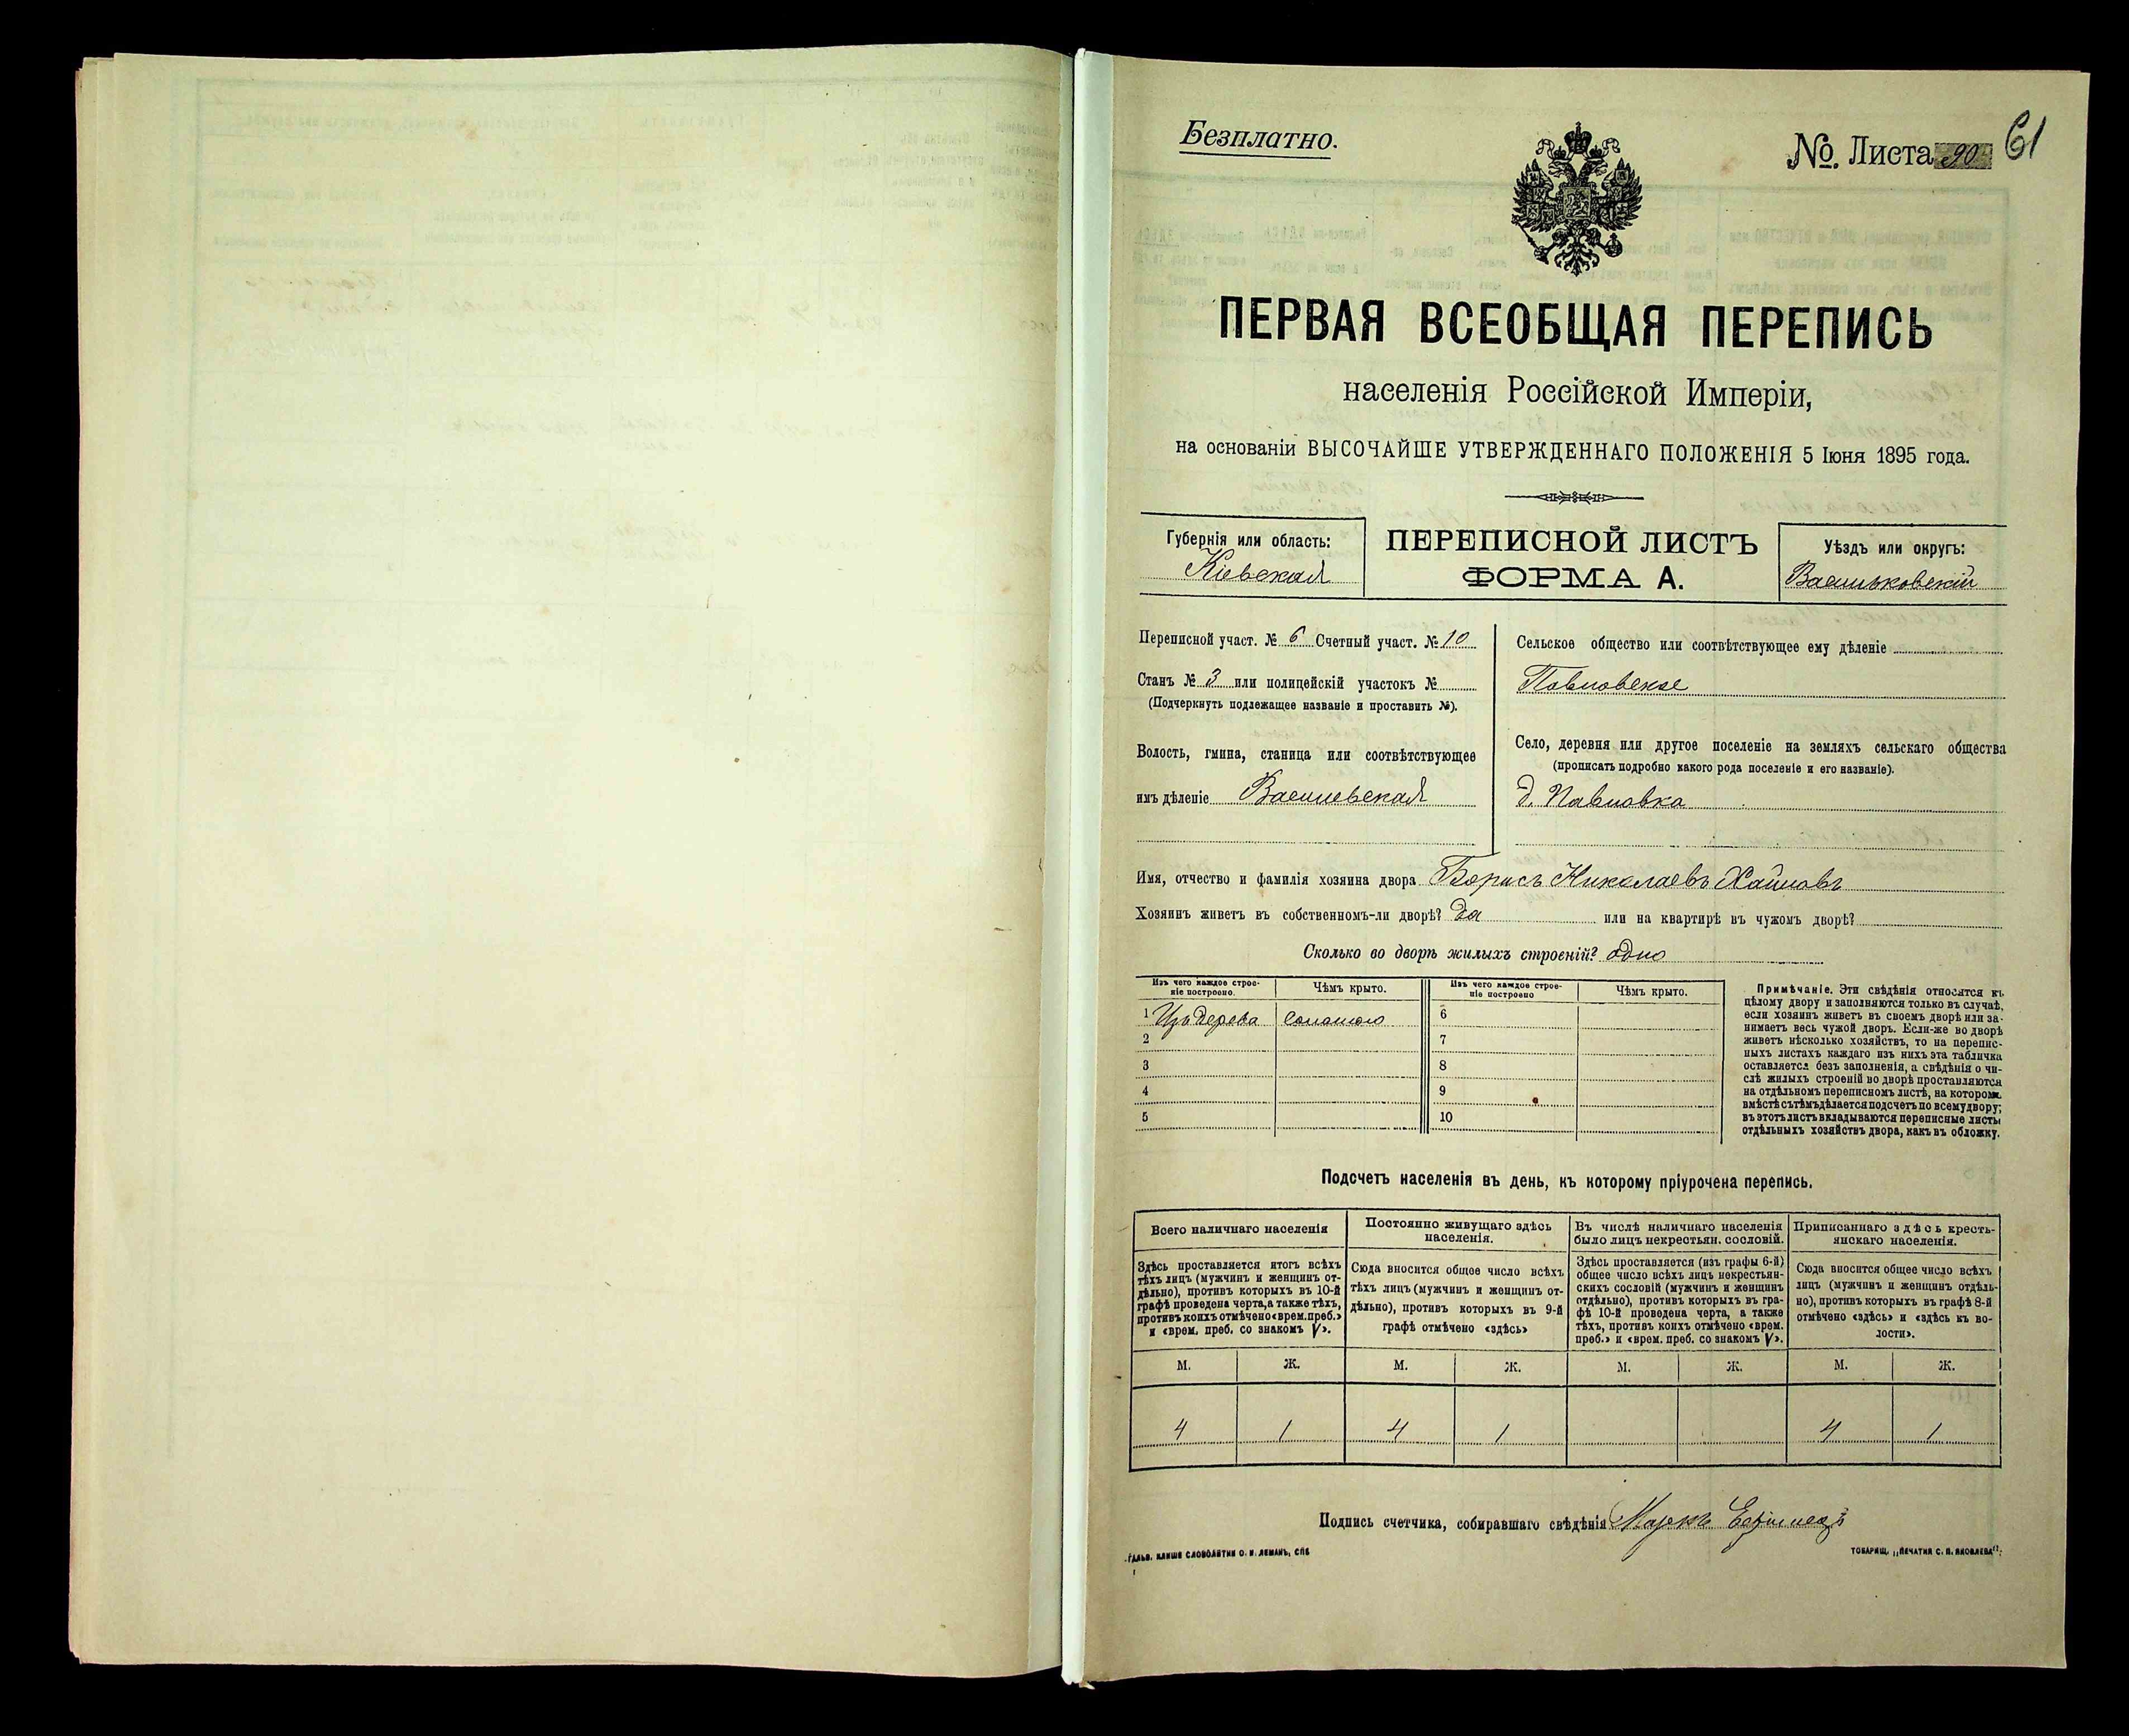 Безплатно.
№. Листа 90
61
ПЕРВАЯ ВСЕОБЩАЯ ПЕРЕПИСЬ
населенія Россійской Имперіи,
на основаніи ВЫСОЧАЙШЕ УТВЕРЖДЕННАГО ПОЛОЖЕНІЯ 5 Іюня 1895 года.
Губернія или область:
Кіевская
ПЕРЕПИСНОЙ ЛИСТЪ
ФОРМА А.
Уѣздъ или округъ:
Васильковскій
Переписной участ. № 6 Счетный участ. № 10
Станъ № 3 или полицейскій участокъ №
(Подчеркнуть подлежащее названіе и проставить №).
Волость, гмина, станица или соотвѣтствующее
имъ дѣленіе
Сельское общество или соотвѣтствующее ему дѣленіе
Павловское
Село, деревня или другое поселеніе на земляхъ сельскаго общества
(прописать подробно какого рода поселеніе и его названіе).
д. Павловка
Имя, отчество и фамилія хозяина двора Борисъ Николаевъ
Хозяинъ живетъ въ собственномъ-ли дворѣ? Да или на квартирѣ въ чужомъ дворѣ?
Сколько во дворѣ жилыхъ строеній? одно
Изъ чего каждое строе-
ніе построено.
Чѣмъ крыто.
1 Изъ дерева соломою
2
3
4
5
Изъ чего каждое строе-
ніе построено
Чѣмъ крыто.
6
7
8
9
10
Примѣчаніе. Эти свѣдѣнія относятся къ
цѣлому двору и заполняются только въ случаѣ,
если хозяинъ живетъ въ своемъ дворѣ или за-
нимаетъ весь чужой дворъ. Если-же во дворѣ
живетъ нѣсколько хозяйствъ, то на перепис-
ныхъ листахъ каждаго изъ нихъ эта табличка
оставляется безъ заполненія, а свѣдѣнія о чи-
слѣ жилыхъ строеній во дворѣ проставляются
на отдѣльномъ переписномъ листѣ, на которомъ
вмѣстѣ съ тѣмъ дѣлается подсчетъ по всему двору;
въ этотъ листъ вкладываются переписные листы
отдѣльныхъ хозяйствъ двора, какъ въ обложку.
Подсчетъ населенія въ день, къ которому пріурочена перепись.
Всего наличнаго населенія
Здѣсь проставляется итогъ всѣхъ
тѣхъ лицъ (мужчинъ и женщинъ от-
дѣльно), противъ которыхъ въ 10-й
графѣ проведена черта, а также тѣхъ,
противъ коихъ отмѣчено «врем. преб.»
и «врем. преб. со знакомъ V».
Постоянно живущаго здѣсь
населенія.
Сюда вносится общее число всѣхъ
тѣхъ лицъ (мужчинъ и женщинъ от-
дѣльно), противъ которыхъ въ 9-й
графѣ отмѣчено «здѣсь»
Въ числѣ наличнаго населенія
было лицъ некрестьян. сословій.
Здѣсь проставляется (изъ графы 6-й)
общее число всѣхъ лицъ некрестьян-
скихъ сословій (мужчинъ и женщинъ
отдѣльно), противъ которыхъ въ гра-
фѣ 10-й проведена черта, а также
тѣхъ, противъ коихъ отмѣчено «врем.
преб.» и «врем. преб. со знакомъ V».
Приписаннаго здѣсь кресть-
янскаго населенія.
Сюда вносится общее число всѣхъ
лицъ (мужчинъ и женщинъ отдѣль-
но), противъ которыхъ въ графѣ 8-й
отмѣчено «здѣсь» и «здѣсь къ во-
лости».
М. Ж. М. Ж. М. Ж. М. Ж.
4 1 4 1 4 1
Подпись счетчика, собиравшаго свѣдѣнія Маркъ
ГАЛЬВ. КЛИШЕ СЛОВОЛИТНИ О. И. ЛЕМАНЪ, СПБ
ТОВАРИЩ. „ПЕЧАТНЯ С. П. ЯКОВЛЕВА“.